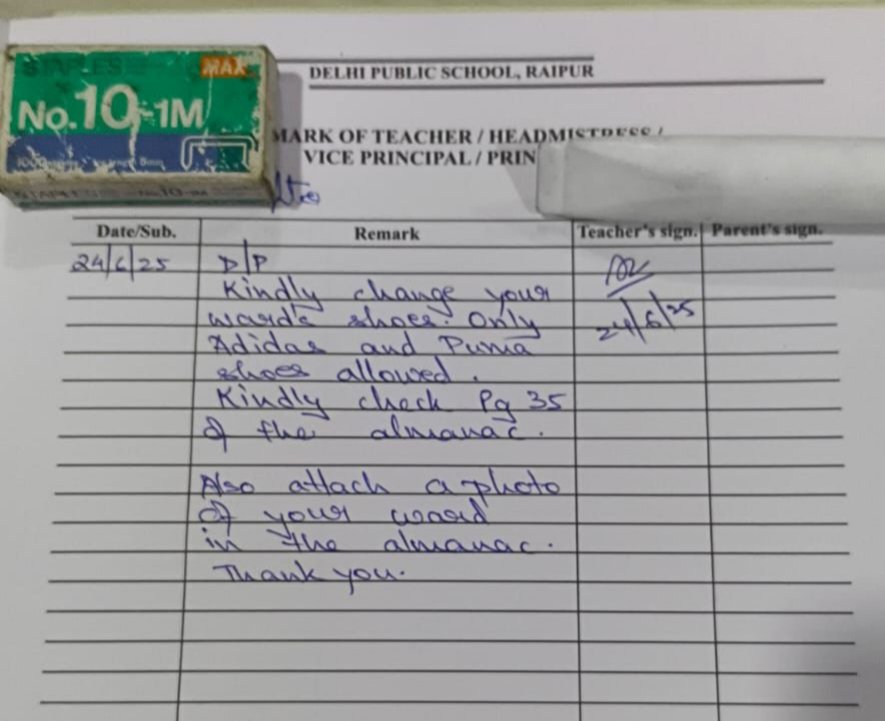 STAPLES MAX
No.10-1M
DELHI PUBLIC SCHOOL, RAIPUR
MARK OF TEACHER / HEADMISTRESS /
VICE PRINCIPAL / PRIN
Date/Sub. Remark Teacher's sign. Parent's sign.
24/6/25 D/P
Kindly change your
ward's shoes. Only 24/6/25
Adidas and Puma
shoes allowed.
Kindly check Pg 35
of the almanac.
Also attach a photo
of your ward
in the almanac.
Thank you.